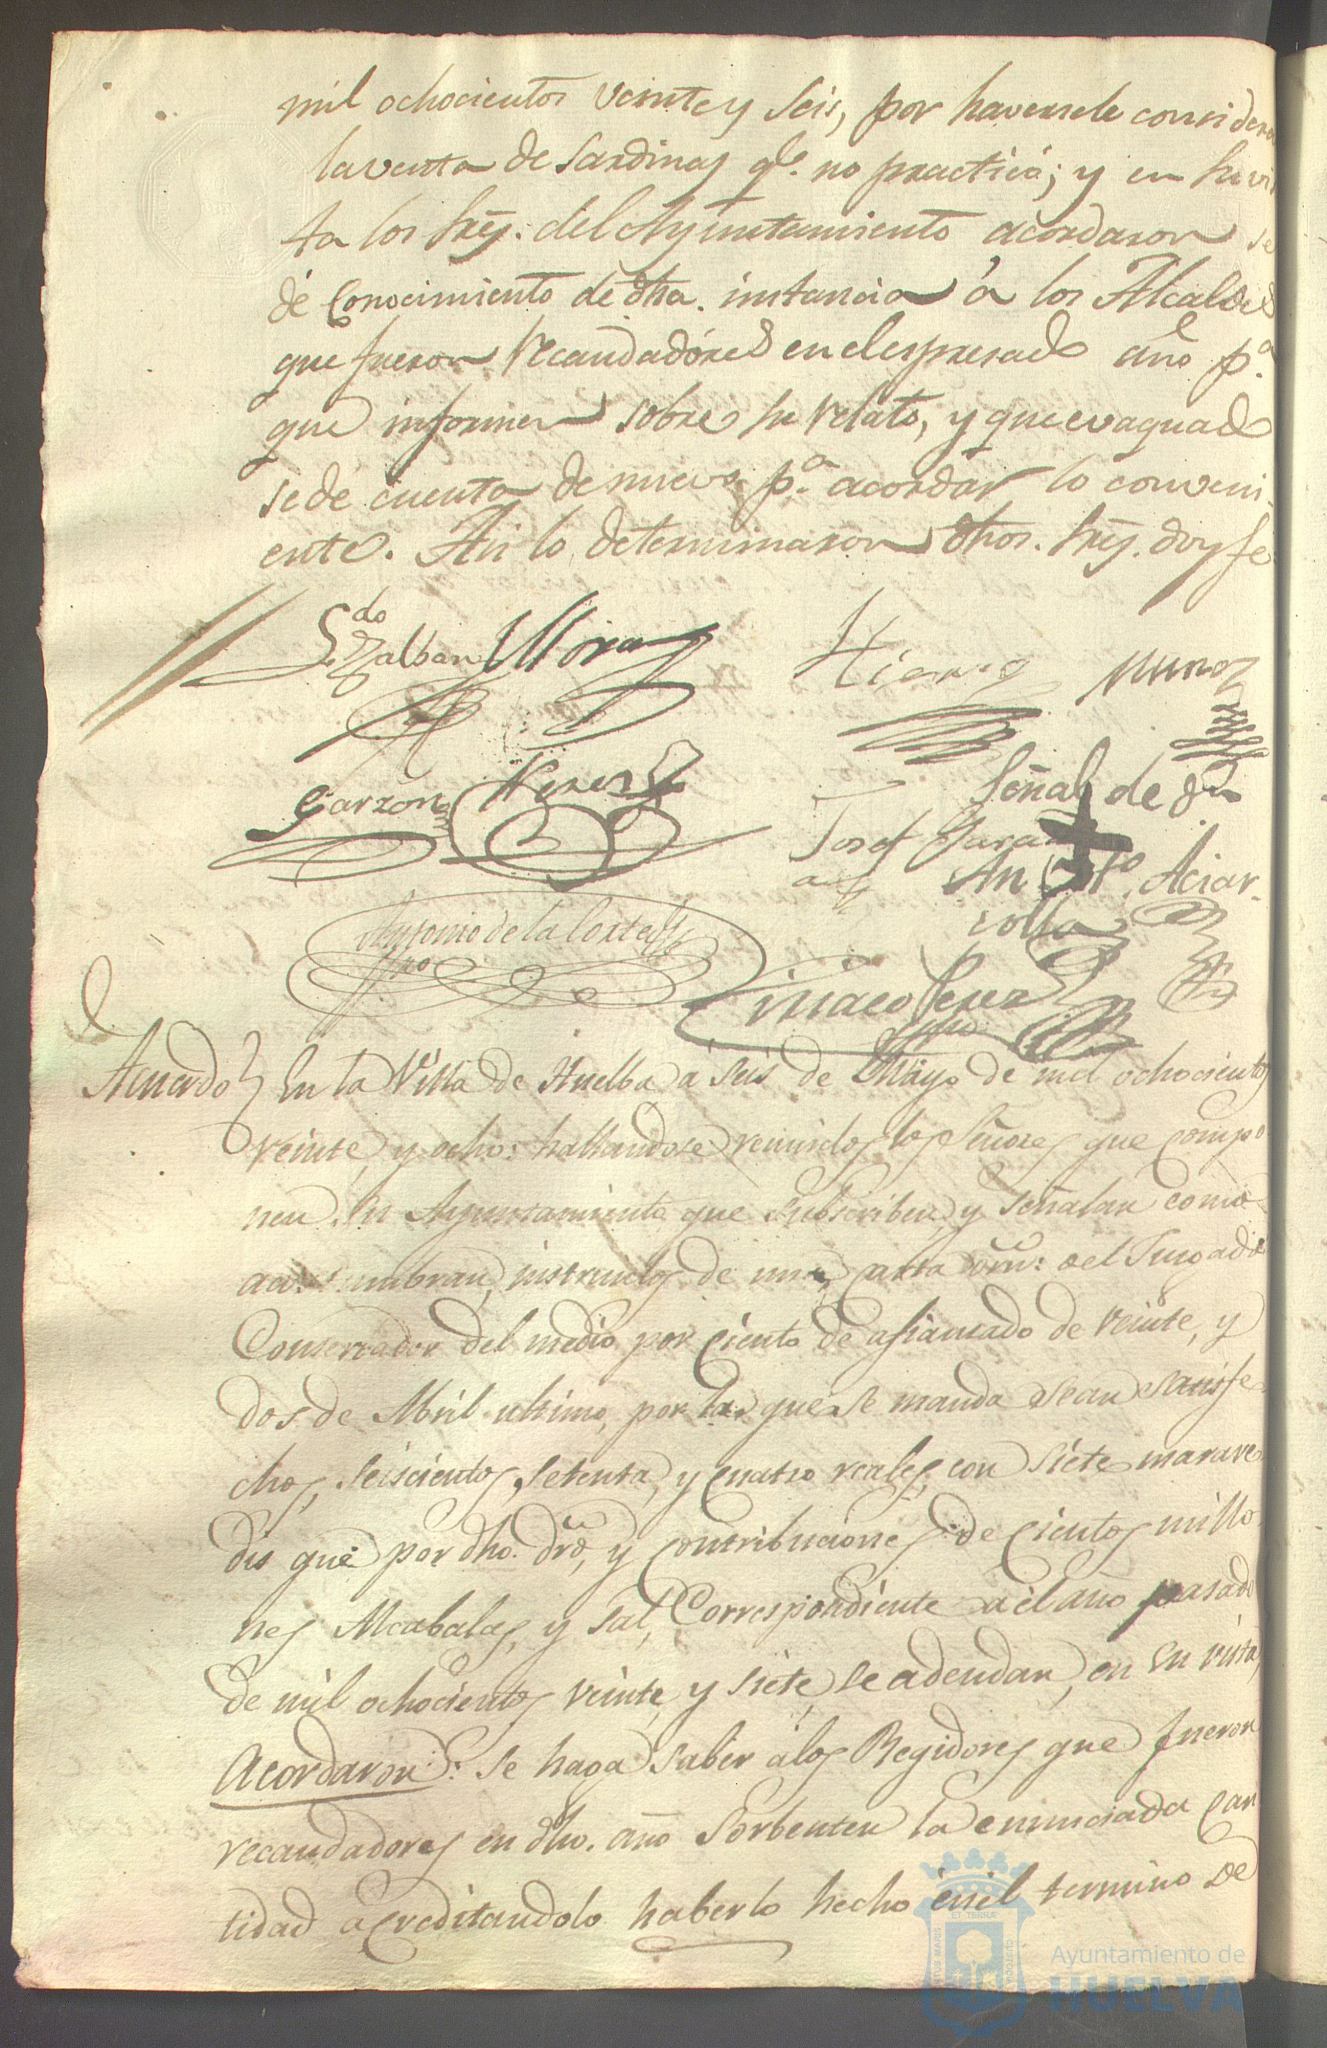 mil ochocientos veinte y seis, por haversele considera
la venta de sardinas qe. no practicó; y en su vis
ta los Sres. del Ayuntamiento acordaron se
dé conocimiento de dha. instancia á los Alcaldes
que fueron recaudadóres en el espresado año pa.
que informen sobre su relato, y que evaquado
se de cuenta de nuevo pa. acordar lo conveni-
ente. Asi lo determinaron dhos. Sres. doy fe
Zalban Mora
Garzon
Muñoz
Señal de
Josef Garcia
Anto. Aciar-
rolla
Antonio de la Corte
Ciriaco Perez
Acuerdo En la Villa de Huelba a seis de Mayo de mil ochocientos
veinte, y ocho: hallandose reunidos los Señores que compo
nen su Ayuntamiento que subscriben, y señalan como
acostumbran, instruidos de una carta orn: del Juzgado
Conservador del medio por ciento de afianzado de veinte, y
dos de Abril ultimo, por la que se manda sean satisfe
chos, seiscientos, setenta, y cuatro reales, con siete marave
dis que por dho. dro, y contribuciones de cientos millo
nes Alcabalas, y sal, correspondiente a el año pasado
de mil ochocientos veinte y siete, se adeudan, en su vista,
Acordaron: se haga saber á los Regidores que fueron
recaudadores en dho. año solventen la enunciada can
tidad acreditandolo haberlo hecho en el termino de
Ayuntamiento de
HUELVA